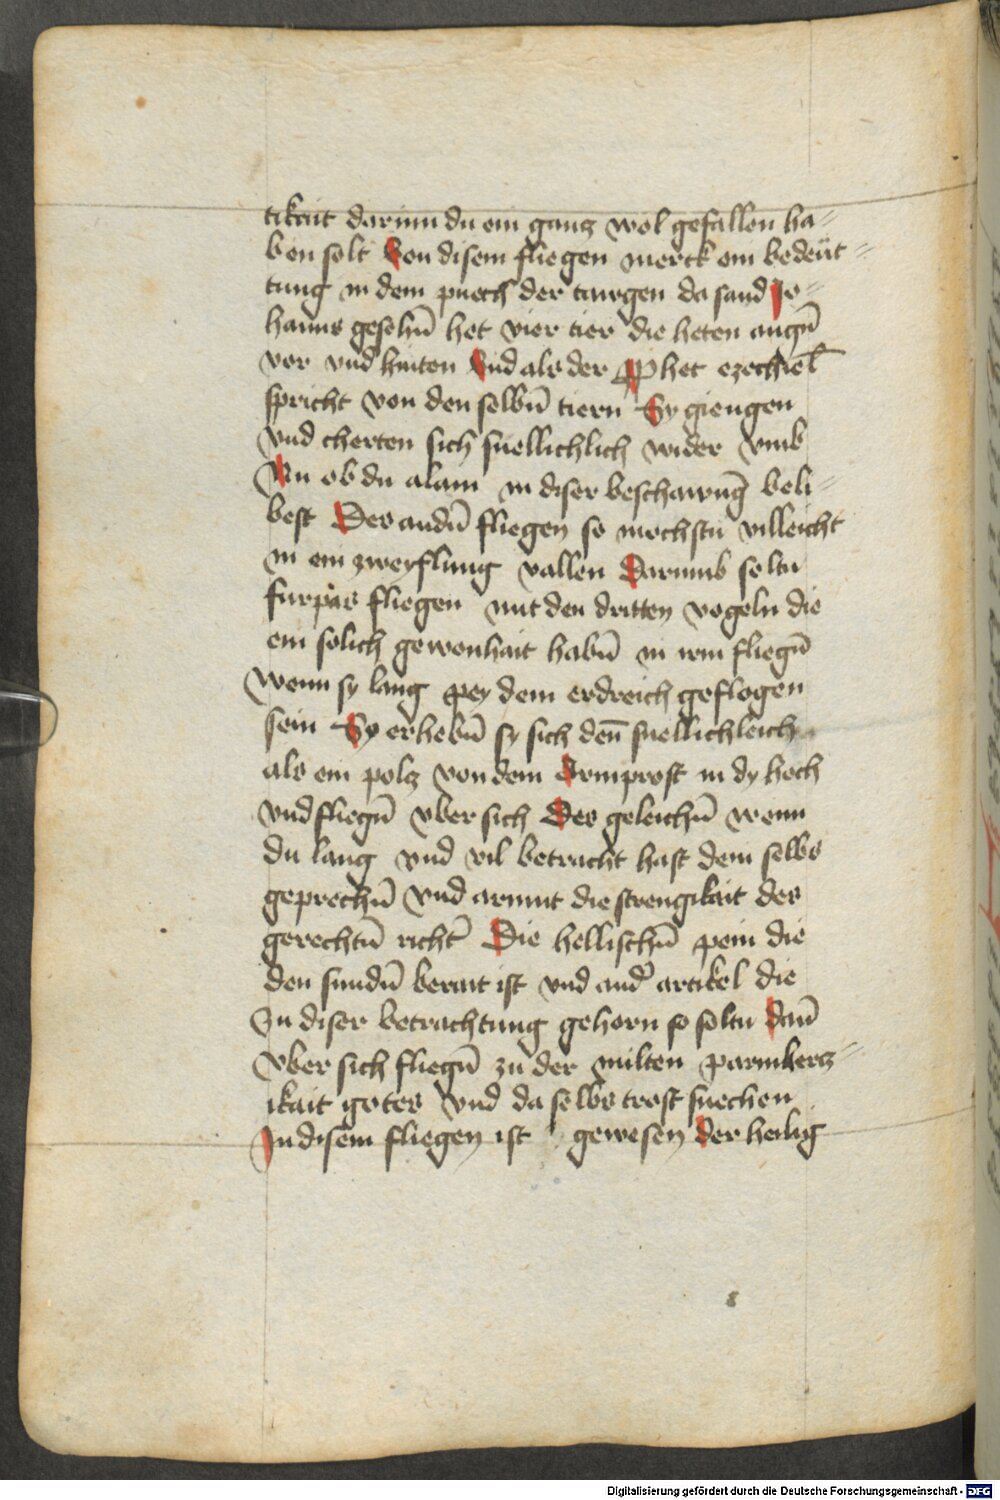 tikait darinn du ein gancz wol gefallen ha⸗
ben solt Von disem fliegen merck ein bedeut⸗
tung in dem puech der taugen da sand Jo⸗
hanns gesehn̄ het vier tier die heten augn̄
vor vnd hinten Vnd als der Ꝓphet ezechiel
spricht von den selbn̄ tiern Sy giengen
vnd cherten sich snellichlich wider vmb
Nu ob du alain in diser beschawnḡ beli⸗
best Des andn̄ fliegen so mochstu villeicht
in ein zweyflung vallen Darumb soltu
furpas fliegen mit den dritten vogeln die
ein solich gewonhait habn̄ in irm fliegn̄
Wenn sy lang pey dem erdreich geflogen
sein Sy erhebn̄ sy sich den̄ snellichleich
als ein polz von dem Armprost in dy hoch
vnd fliegn̄ vber sich Des geleichn̄ wenn
du lang vnd vil betracht hast dein selbs
geprechn̄ vnd armut die strengikait des
gerechtn̄ richt̄ Die hellischn̄ pein die
den sundn̄ berait ist vnd and̄ artikel die
Zu diser betrachtung gehorn so soltu dan̄
vber sich fliegn̄ zu der milten parmhercz⸗
ikait gotes vnd da selbs trost suechen
In disem fliegen ist gewesen der heilig
Digitalisierung gefördert durch die Deutsche Forschungsgemeinschaft - DFG